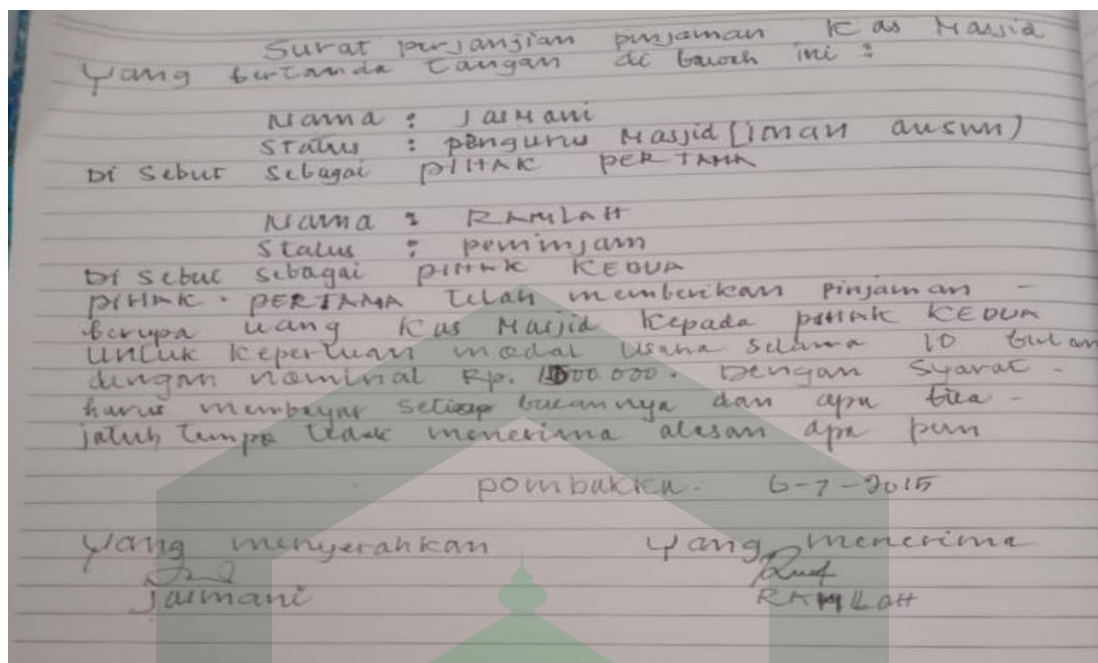 Surat perjanjian pinjaman Kas Masjid
Yang bertanda tangan di bawah ini :
Nama : Jasmani
Status : pengurus Masjid (iman dusun)
Di Sebut Sebagai PIHAK PERTAMA
Nama : RAMLAH
Status : peminjam
Di Sebut sebagai PIHAK KEDUA
PIHAK . PERTAMA telah memberikan Pinjaman -
berupa uang Kas Masjid kepada PIHAK KEDUA
untuk keperluan modal usaha selama 10 bulan
dengan nominal Rp. 000 000. Dengan Syarat -
harus membayar setiap bulannya dan apa bila -
jatuh tempo tidak menerima alasan apa pun
pombakka. 6-7-2015
Yang menyerahkan Yang menerima
Jasmani RAMLAH